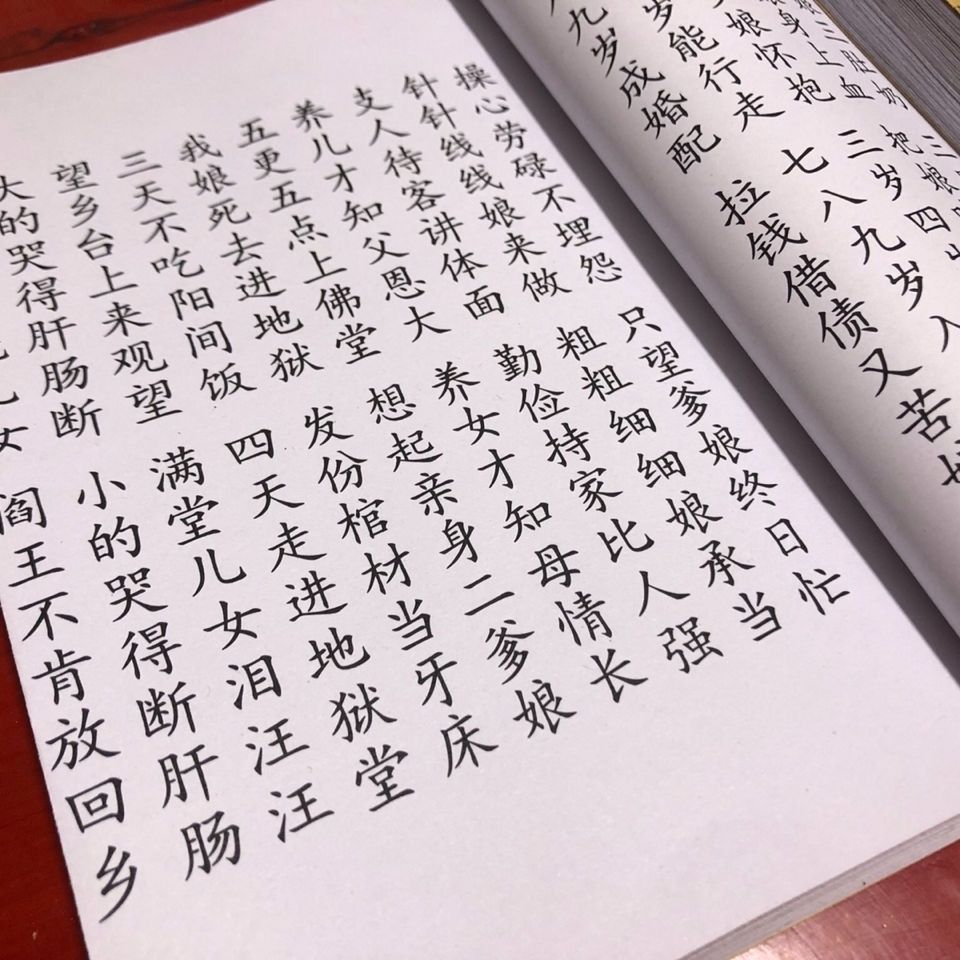 三肚奶 三
身上血 把娘
娘怀抱 三岁四岁
岁能行走 七八九岁入
九岁成婚配 拉钱借债又苦
操心劳碌不埋怨 只望爹娘终日忙
针针线线娘来做 粗粗细细娘承当
支人待客讲体面 勤俭持家比人强
养儿才知父恩大 养女才知母情长
五更五点上佛堂 想起亲身二爹娘
我娘死去进地狱 发份棺材当牙床
三天不吃阳间饭 四天走进地狱堂
望乡台上来观望 满堂儿女泪汪汪
大的哭得肝肠断 小的哭得断肝肠
女 阎王不肯放回乡